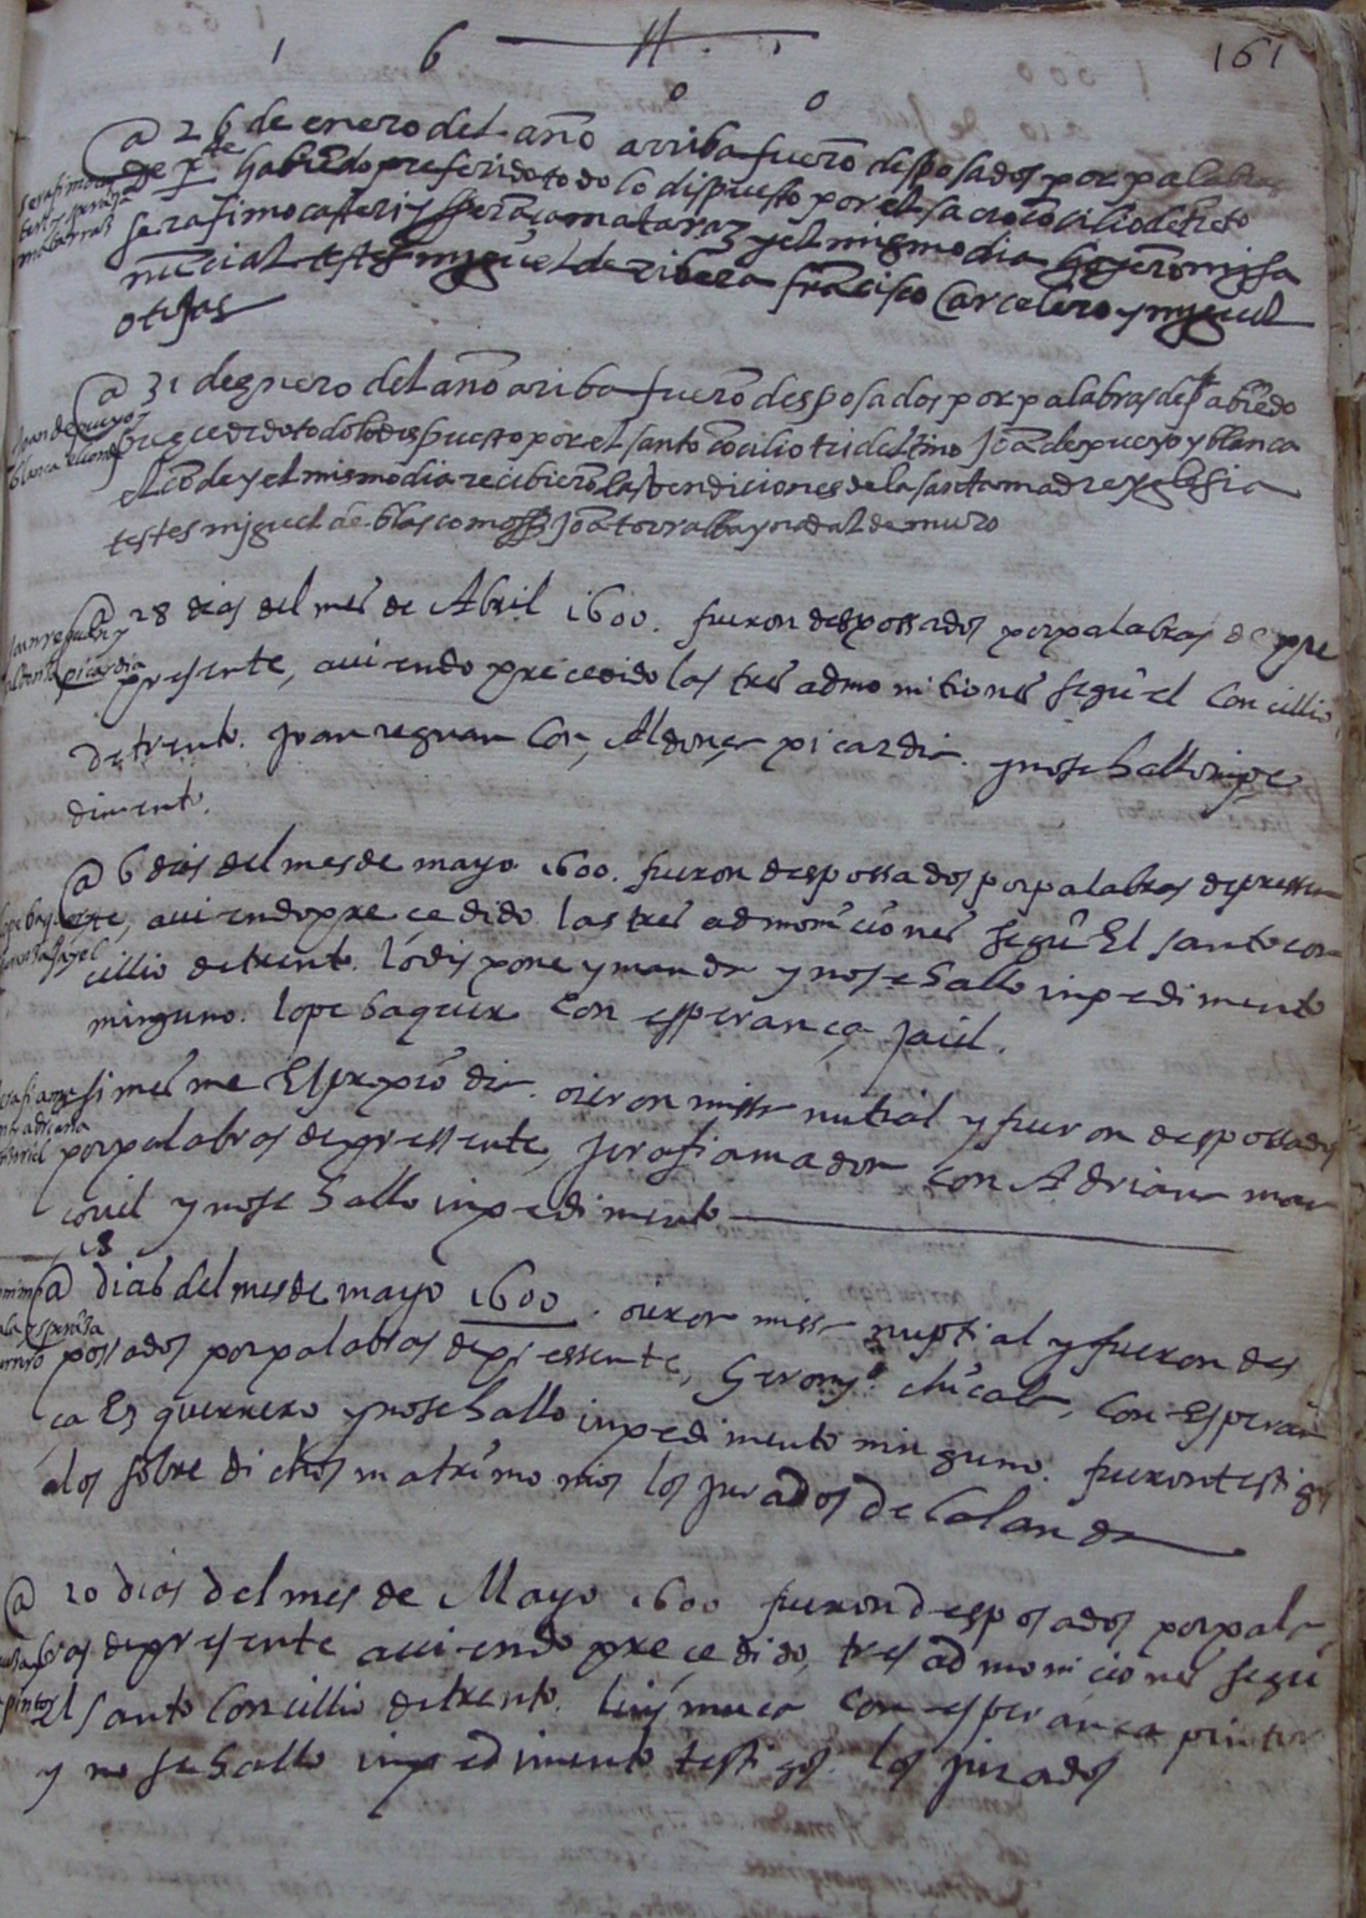 1 6 0 0
161
a 26 de enero del año arriba fuerõ desposados por palabras
de pte habiẽdo preferido todo lo dispuesto por el sacro cõcilio de trẽto
serafimo casteri y sperãça mataraz y el mismo dia hoyerõ missa
nũcial testes miguel de ribera frãcisco Carcelero y miguel
a 31 de genero del año ariba fuerõ desposados por palabras de pte abiẽdo
precedido todo lo dispuesto por el santo cõcilio tridẽtino joã de pueyo y blanca
el cõde y el mismo dia recibierõ las bendiciones de la santa madre yglesia
testes miguel de blasco mossẽ joã torralba y nadal de muro
a 28 dias del mes de Abril 1600. fueron despossados por palabras de pre
presente, auiendo precedido las tres admonitiones segũ el Concillio
de trento. Juan reguar Con, Aldonça picardia. y no se hallo inpe
dimento.
a 6 dias del mes de mayo 1600. fueron despossados por palabras de pressen
te, auiendo precedido las tres admoniciones segũ El santo con
cillio de trento. lo dispone y manda y no se hallo inpedimento
ninguno. lope baquer Con esperança jaiel.
asi mesme El propio dia. oieron missa nutial y fueron despossados
por palabras de pressente, serafi amador con Adriana mar
coriel y no se hallo inpedimento
a 18 dias del mes de mayo 1600. oieron missa nuptial y fueron des
possados por palabras de pressente, Geronyº chũcala, Con Esperan
ça Es guerrero y no se hallo inpedimento ninguno. fueron testigos
a los sobre dichos matrimonios los jurados de Calanda
a 20 dias del mes de Mayo 1600 fueron desposados por pala
bras de presente auiendo precedido, tres admoniciones segũ
El santo Concillio de trento. luis muca con esperança pintor
y no se hallo inpedimento testigos. los jurados